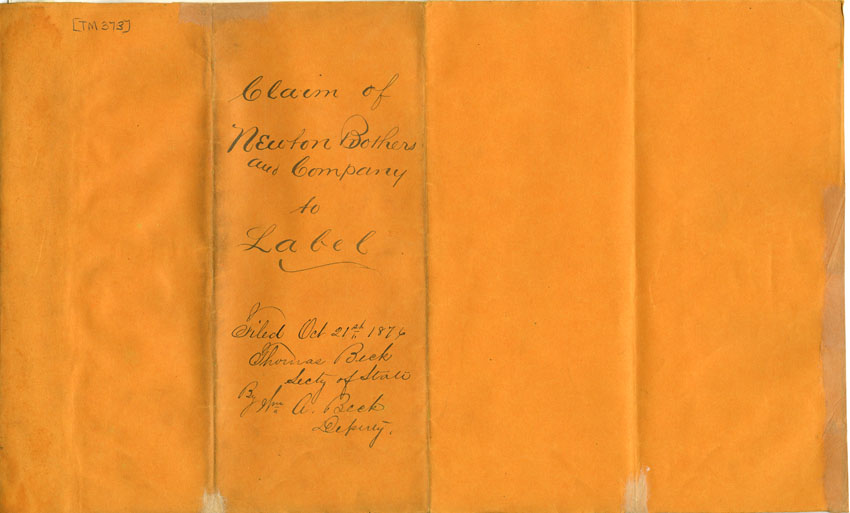 [TM 373]
Claim of
Newton Bothers
and Company
to
Label
Filed Oct 21st 1876
Thomas Beck
Secty of State
By Wm A. Beck
Deputy.